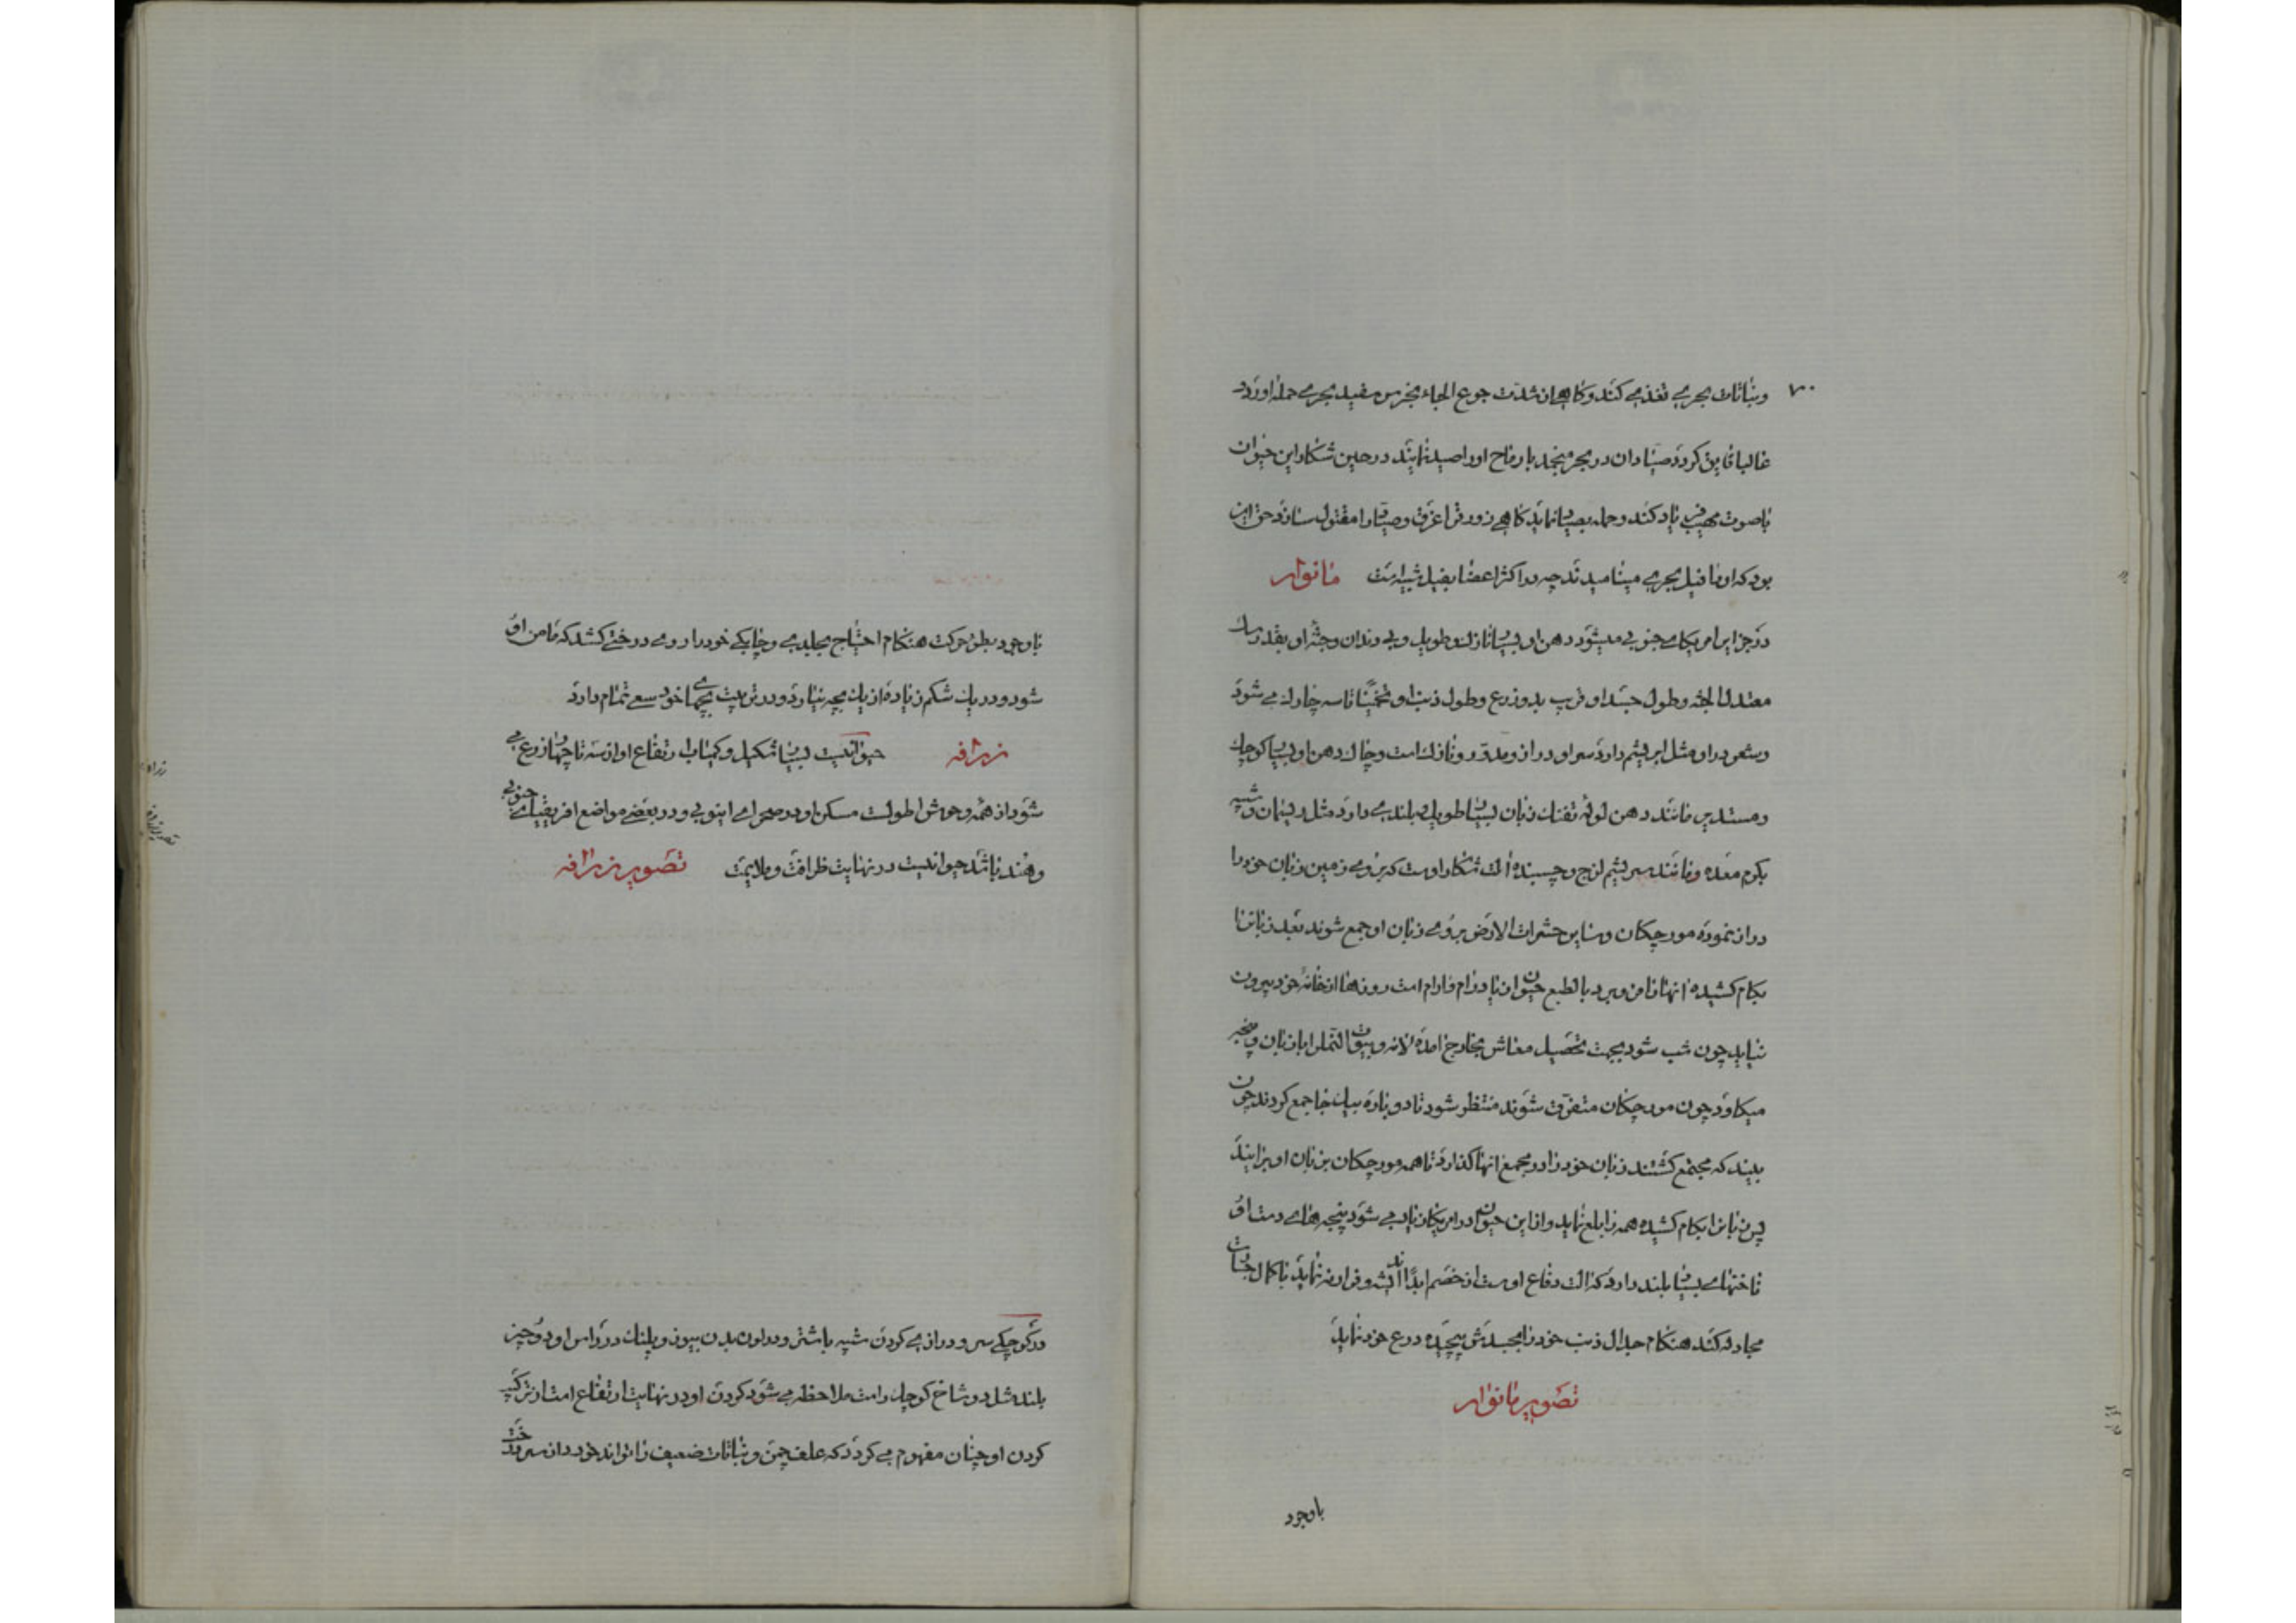 ۷۰
ونباتات بحری تغذی کند و گاهی از شدت جوع الجاء بخرس سفید بحری حمله آورد
غالبا فایق کردد صیادان در بحر منجمد با رماح او را صید نمایند در حین شکار این حیوان
با صوت مهیب فریاد کند و حمله بصیاد نماید گاهی زورق را غرق و صیاد را مقتول سازد حق این
بود که او را فیل بحری مینامیدند چه در اکثر اعضا بفیل شبیه است مانوار
در جزایر امریکای جنوبی میشود دهن او بسیار نازک و طویل و بی دندان و جثه او بقدر سک
معتدل الجثه و طول جسد او قریب بدو زرع و طول ذنب او تخمینا تا سه چارک می شود
وشعر در او مثل ابریشم دارد سر او دراز و مدور و نازک است و چاک دهن او بسیار کوچک
ومستدیر مانند دهن لوله تفنک زبان بسیار طویل بلندی دارد مثل ریسمان و شبیه
بکرم معده و مانند سریشم لزج و چسبنده آلت شکار اوست که بر روی زمین زبان خود را
دراز نموده مورچکان و سایر حشرات الارض بر روی زبان او جمع شوند بعد زبانرا
بکام کشیده آنها را فرو برد بالطبع حیوان با درام و ارام است روزها از خانه خود بیرون
نیاید چون شب شود بجهت تحصیل معاش بخارج آمده لانه و بیوت النمل را با زبان و پنجه
میکاود چون مورچکان متفرق شوند منتظر شود تا دوباره بیک جا جمع کردند چون
بیند که مجتمع کشتند زبان خود را در مجمع آنها کذارد تا همه مورچکان بزبان او برایند
پس زبانرا بکام کشیده همه را بلع نماید و از این حیوان در امریکا زیاد می شود پنجه های دست او
ناختهای بسیار بلند دارد که آلت دفاع اوست از خصم ابدا اندیشه و فرار نه نماید با کمال جسارت
مجادله کند هنکام جدال ذنب خود را بجسدش پیچیده درع خود نماید
تصویر مانوار
باوجود
باوجود بطؤ حرکت هنکام احتیاج بجلدی و چابکی خود را بروی درختی کشد که مامن او
شود و در یک شکم زیاده از یک بچه نیارد و در تربیت بچهای خود سعی تمام دارد
زرافه حیوانیست بسیار شکیل و کمیاب ارتفاع او از سه تا چهار زرع می
شود از همه وحوش اطولست مسکن او در صحرای اتیوبی و در بعضی مواضع افریقیای جنوبی
وهند باشد حیوانیست در نهایت ظرافت و ملایمت تصویر زرافه
در کوچکی سر و درازی کردن شبیه باشتر و در لون بدن بیوز و پلنک در راس او دو چیز
بلند مثل دو شاخ کوچک راست ملاحظه می شود کردن او در نهایت ارتفاع است از ترکیب
کردن او چنان مفهوم می کردد که علف چمن و نباتات ضعیف را نتواند خورد از سر درخت